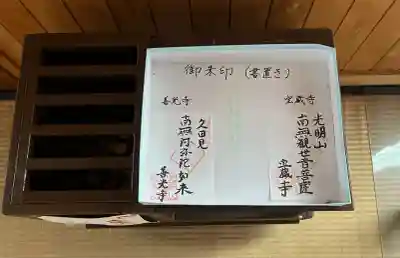 御朱印（書置き）
宝蔵寺
光明山
南無観世音菩薩
宝蔵寺
善光寺
久田見
南無阿弥陀如来
善光寺